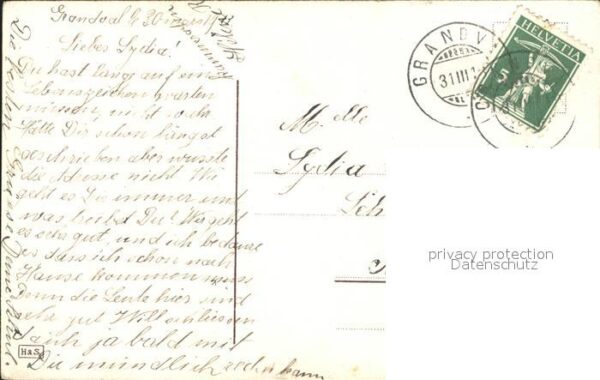 Grandval, 30
Liebes Lydia!
Du hast lang auf und
Lebenszeichen warten
müssen, nicht wahr
Hätte Dir schon längst
geschrieben aber wusste
die Adresse nicht Wi
geht es Dir immer und
was treibst Du? Mir geht
es sehr gut, und ich bedaure
es dass ich schon nach
Hause kommen muss
Denn die Leute hier sind
sehr gut Will schliessen
auch ja bald mit
Die mündlich reden kann
Die besten Grüsse
M. lle
Lydia
Sch
GRANDV
31 III 1
HELVETIA
5
privacy protection
Datenschutz
H&S